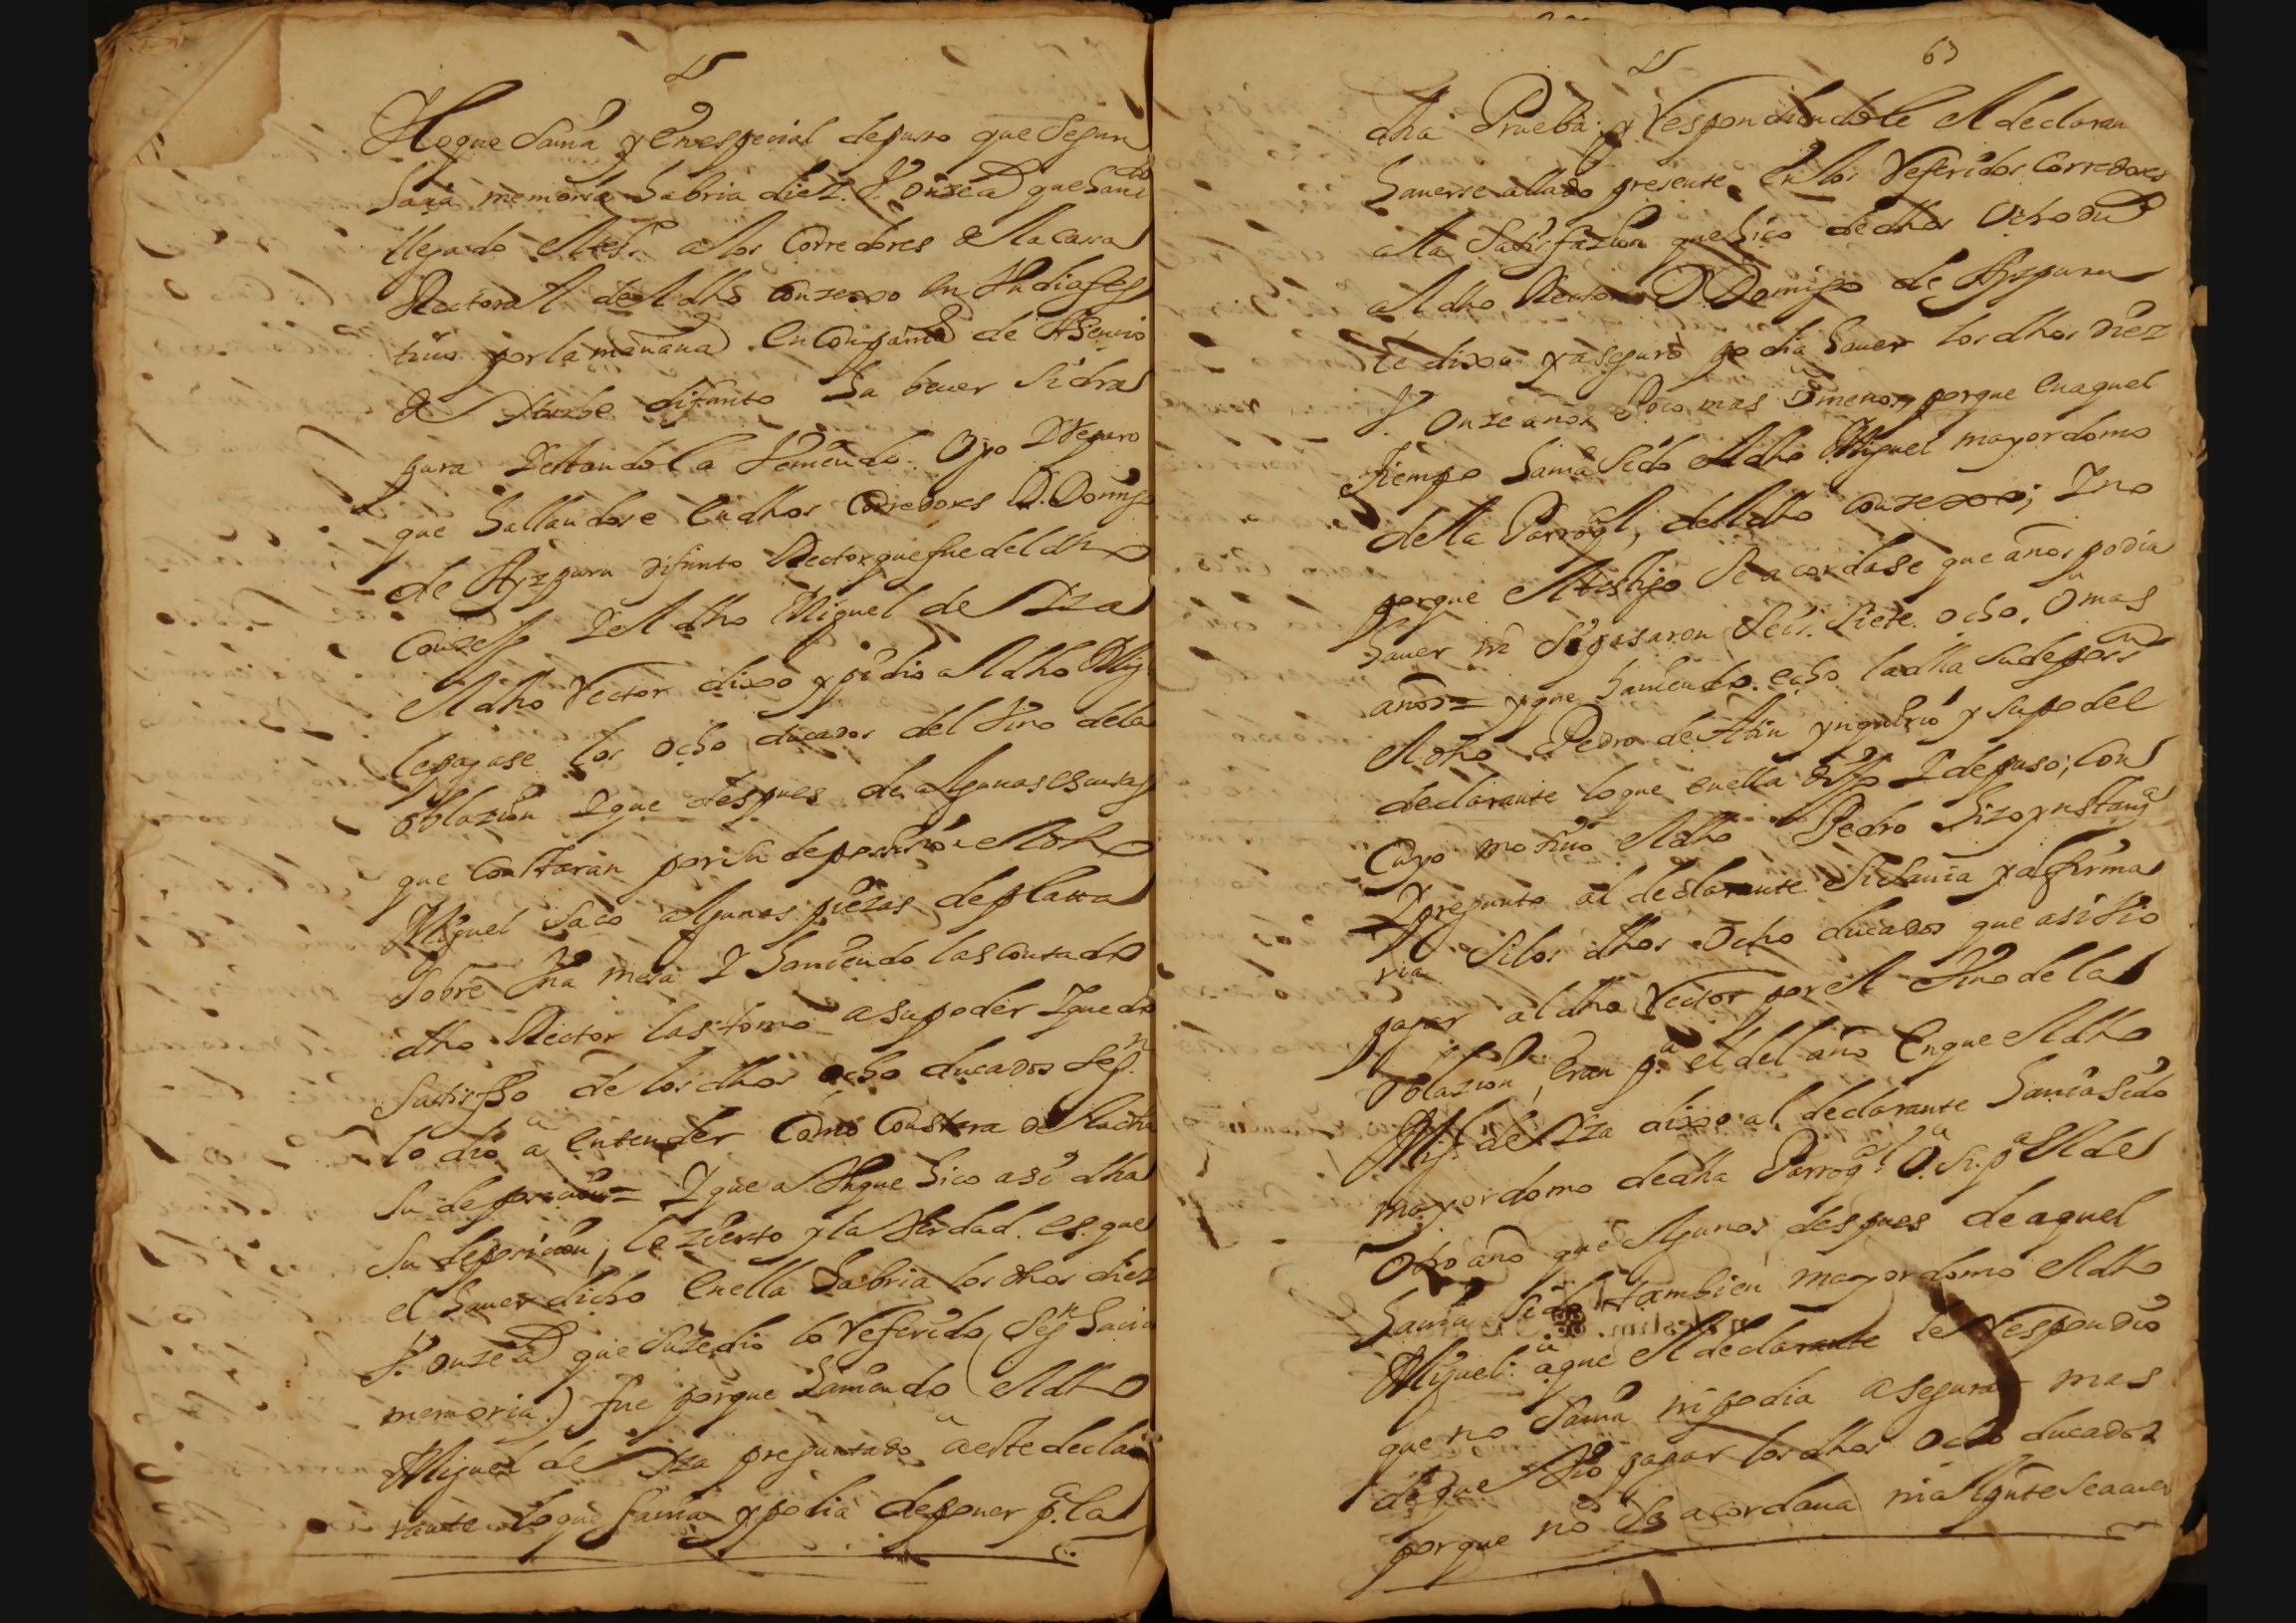 lo que savia y en especial depuso que Segun
su memoria habria diez u onze a.s que havi
llegado el tes.o a los Corredores de la cassa
Rectoral de el dho Conzexo en un dia fes
tiuo por la mañana en Compania de Asencio
de Iturbe difunto ha bever Sidra
pura y estando la veviendo oyo y reparo
que hallandose en dhos Corredores D. Domingo
de Ayzpuru difunto Rector que fue del dho
Conzejo y el dho Miguel de Yza
el dho Rector dixo y pidio a el dho Mig.l
le pagase los ocho ducados del vino de la
oblazion y que despues de algunas escusas
que constaran por su deposicion el dho
Miguel saco algunas piezas de plata
sobre una mesa y haviendo las contado
dho Rector las tomo a su poder y quedo
satisfho de los dhos ocho ducados seg.n
lo dio a entender Como Constara de la dha
su deposicion = y que aunque hico asi dha
su deposicion, lo zierto y la verdad es que
el haver dicho en ella habria los dhos diez
u onze a.s que suzedio lo referido (seg.n hacia
memoria) fue porque haviendo el dho
Miguel de Yza preguntado a este decla
rante lo que savia y podia deponer p.a la
63
dha Prueba y respondiendole el declaran
haverse allado presente en los referidos Corredores
a la satisfazion que hico de dhos ocho du.s
al dho Rector D. Domingo de Ayzpuru
le dixo y aseguro podia haver los dhos diez
u onze años poco mas o menos, porque en aquel
tiempo havia sido el dho Miguel mayordomo
de la Parroq.l del dho Conzexo; y no
porque el testigo se acordase que años podia
haver ni si pasaron seis, siete, ocho, o mas
años = y que haviendo echo la dha su depos.n
el dho Pedro de Atin ynquirio y supo del
declarante lo que en ella dijo y depuso; con
cuyo motivo el dho Pedro hizo ynstanz.a
y pregunto al declarante si savia y afirma
ria si los dhos ocho ducados que asi vio
pagar al dho Rector por el vino de la
oblazion, eran p.a el del año en que el dho
Mig.l de Yza dixo al declarante havia sido
mayordomo de dha Parroq.l o si p.a el de
otro año que algunos despues de aquel
havia sido tambien mayordomo el dho
Miguel: a que el declarante le respondio
que no savia ni podia asegurar mas
de que vio pagar los dhos ocho ducados
porque no se acordava